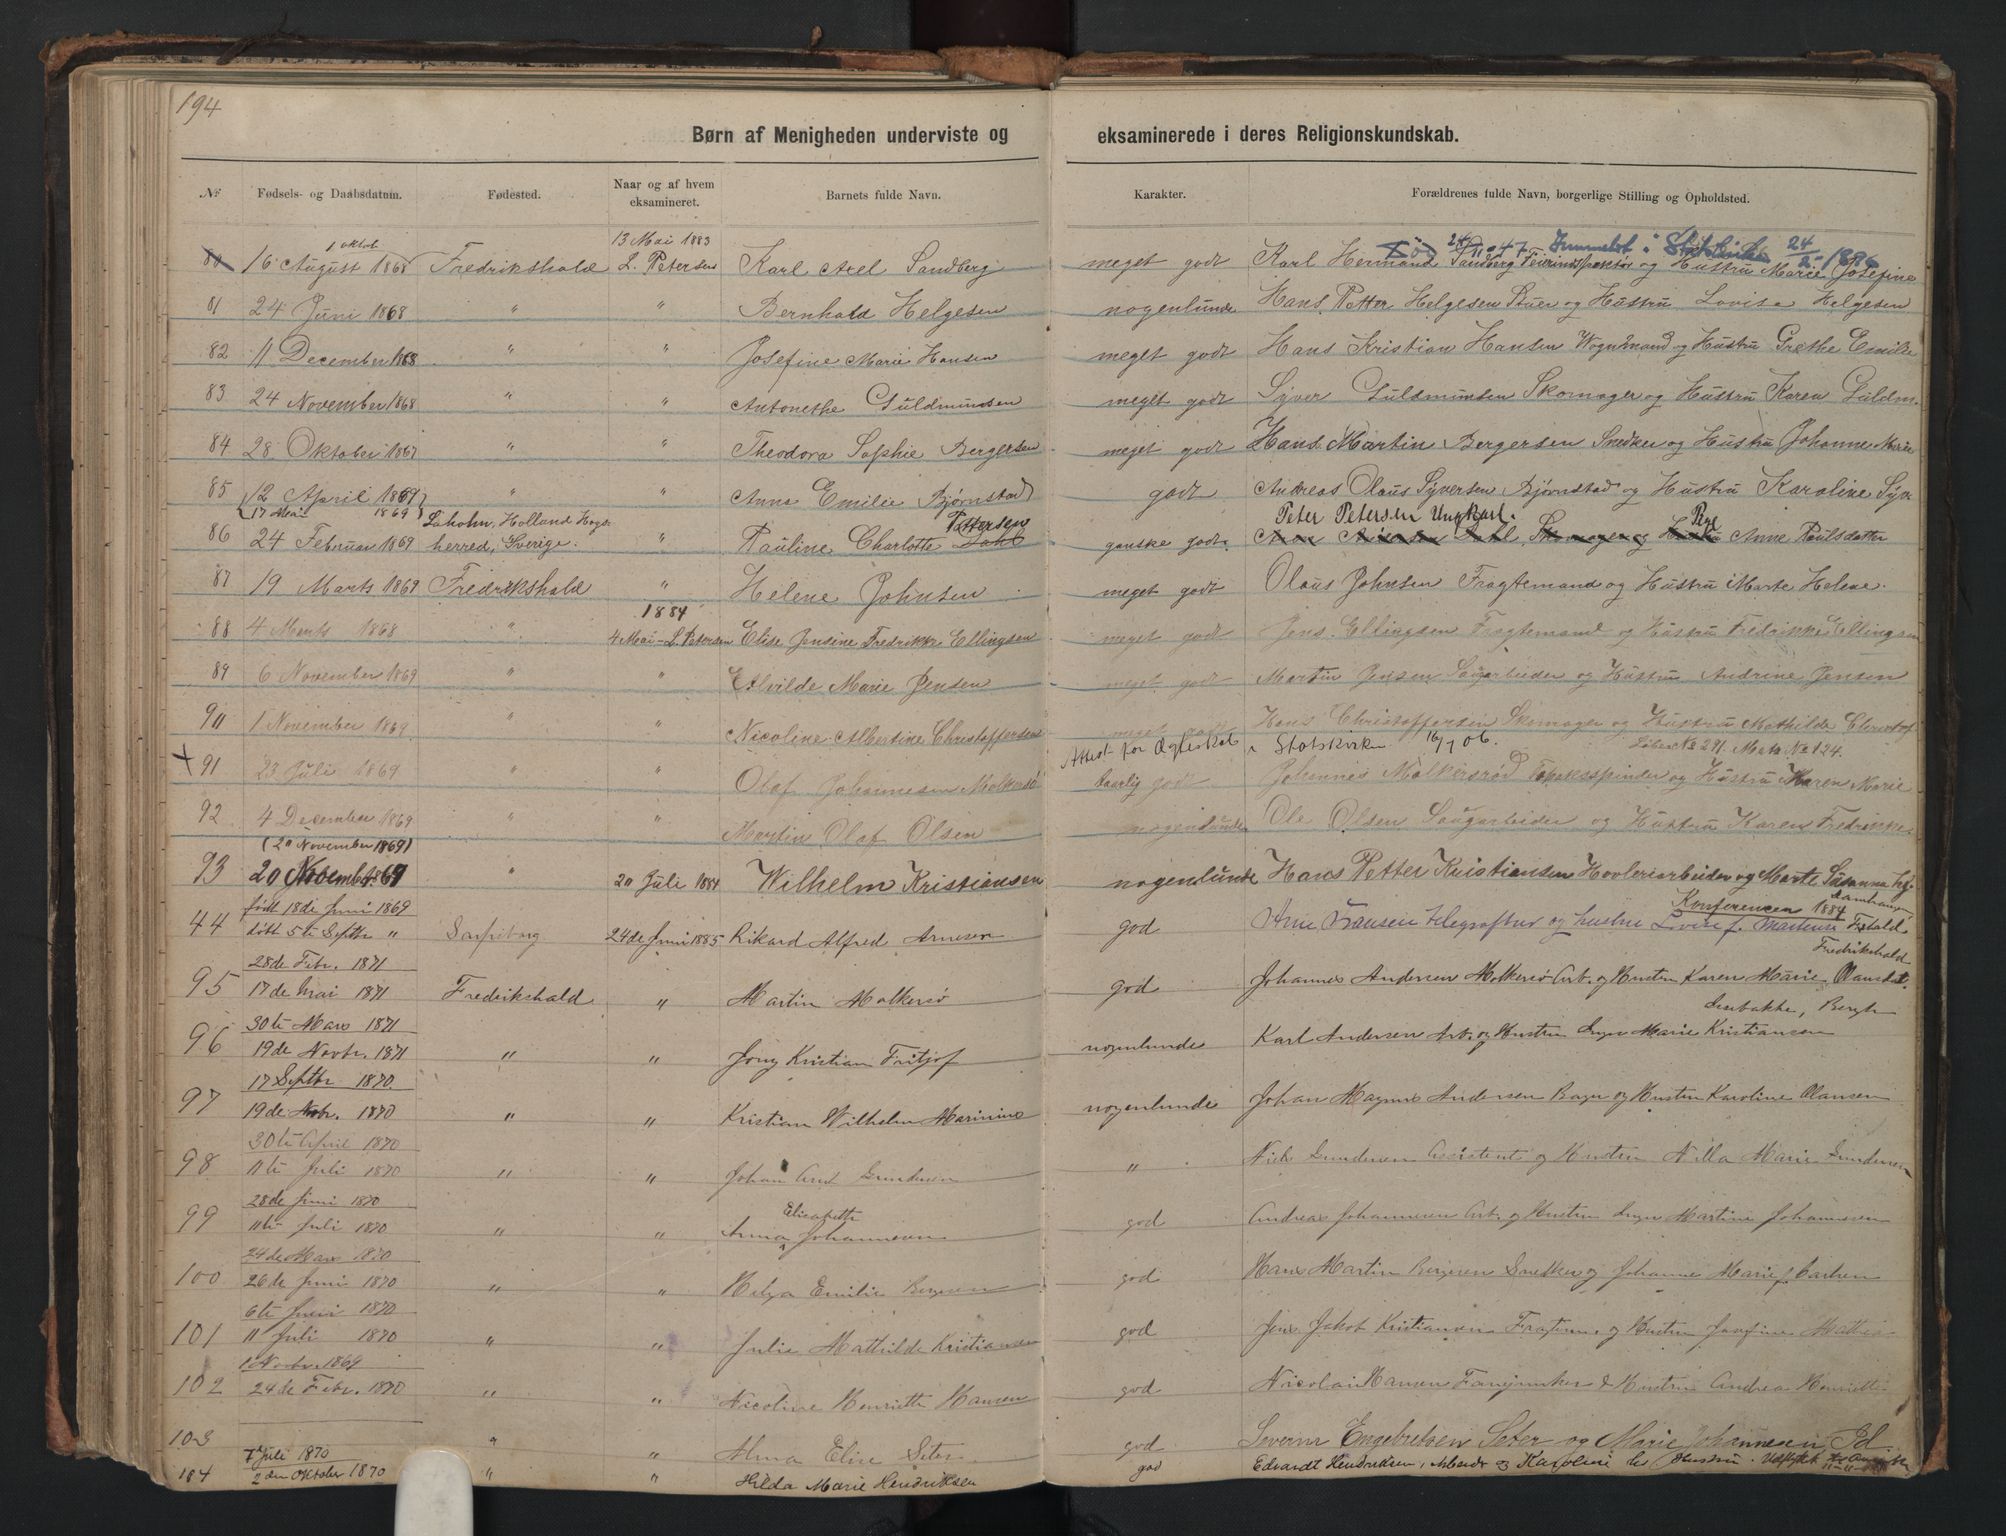 194
Børn af Menigheden underviste og eksaminerede i deres Religionskundskab.
№ Fødsels- og Daabsdatum. Fødested. Naar og af hvem eksamineret. Barnets fulde Navn. Karakter. Forældrenes fulde Navn, borgerlige Stilling og Opholdsted.
1 oktob 13 Mai 1883 Død 24/11-47 i Statskirke 24/2 1896
80 16 August 1868 Fredrikshald L. Petersen Karl Axel Sandberg meget godt Karl Hermand Sandberg Feierinspektør og Hustru Marie Josefine
81 24 Juni 1868 " " Bernhard Helgesen nogenlunde Hans Petter Helgesen Stuer og Hustru Lovise Helgesen
82 11 December 1868 " " Josefine Marie Hansen meget godt Hans Kristian Hansen Vognmand og Hustru Grethe Emilie
83 24 November 1868 " " Antonethe Guldmundsen meget godt Syver Guldmundsen Skomager og Hustru Karen Guldm.
84 28 Oktober 1867 " " Theodora Sophie Bergersen meget godt Hans Martin Bergersen Snedker og Hustru Johanne Marie
85 12 April 1869 " " Anna Emilie Bjørnstad godt Andreas Olaus Syversen Bjørnstad og Hustru Karoline Syv
17 Mai 1869 Laholm, Holland Høgs Pettersen Peter Petersen Ungkarl. Pige
86 24 Februar 1869 herred, Sverige. " Pauline Charlotte ganske godt. Skomager og Anne Poulsdatter
87 19 Marts 1869 Fredrikshald " Helene Johnsen meget godt Olaus Johnsen Fragtemand og Hustru Marte Helene.
1884
88 4 Marts 1868 " 4 Mai - L. Petersen Elise Jensine Fredrikke Ellingsen meget godt Jens Ellingsen Fragtemand og Hustru Fredrikke Ellingsen
89 6 November 1869 " " Alvilde Marie Jensen meget godt Martin Jensen Saugarbeider og Hustru Andrine Jensen
90 1 November 1869 " " Nicoline Albertine Christoffersen meget godt Hans Christoffersen Skomager og Hustru Mathilde Christof
Attest for Ægteskab i Statskirken 16/7 06. Løbe No 271. Mots No 124.
+ 91 23 Juli 1869 " " Olaf Johannesen Molkersø daarlig godt Johannes Molkersrød Tobaksspinder og Hustru Karen Marie
92 4 December 1869 " " Martin Olaf Olsen nogenlunde Ole Olsen Saugarbeider og Hustru Karen Fredrikke
(20 November 1869)
93 20 November 1869 " 20 Juli 1884 Wilhelm Kristiansen nogenlunde Hans Petter Kristiansen Høvleriarbeider og Marte Susanna
født 18de Juni 1869 Konferencen 1884
44 døbt 5te Septbr " Sarpsborg 24de Juni 1885 Rikard Alfred Arnesen god Arne Hansen Telegraftur og hustru Lovise f. Martensen Fshald
28de Febr. 1871 Fredrikshald
95 17de Mai 1871 Fredrikshald " Martin Molkersø god Johannes Andersen Molkersø Arb. og Hustru Karen Marie Olausdat.
30te Mars 1871
96 19de Novbr. 1871 " " Jøns Kristian Fritjof nogenlunde Karl Andersen Arb. og Hustru Inge Marie Kristiansen
17 Septbr 1870
97 19de Nobr. 1870 " " Kristian Wilhelm Marinius nogenlunde Johan Magnus Andersen Bager og Hustru Karoline Olausen
30te April 1870
98 11te Juli 1870 " " Johan Gundersen " Nick Gundersen Assistent og Hustru Nilla Marie Gundersen
28de Juni 1870 Elisabeth
99 11te Juli 1870 " " Anna Johannesen god Andreas Johannesen Arb. og Hustru Inger Martine Johannesen
24de Mars 1870
100 26de Juni 1870 " " Helga Emilie Bergersen god Hans Martin Bergersen Snedker og Johanne Marie f. Carlsen
6te Juni 1870
101 11 Juli 1870 " " Julie Mathilde Kristiansen god Jens Jakob Kristiansen Fragtem. og Hustru Josefine Mathi
1 Novbr. 1869
102 24de Febr. 1870 " " Nicoline Henriette Hansen god Nicolai Hansen & Hustru Andrea Henriette
103 " " Alma Elise Seter god Soverin Engebretsen Seter og Marie Johannesen
7 Juli 1870
104 2den Oktober 1870 " " Hilda Marie Hendriksen god Edvardt Hendriksen, Arbeider og Karoline Hustru.